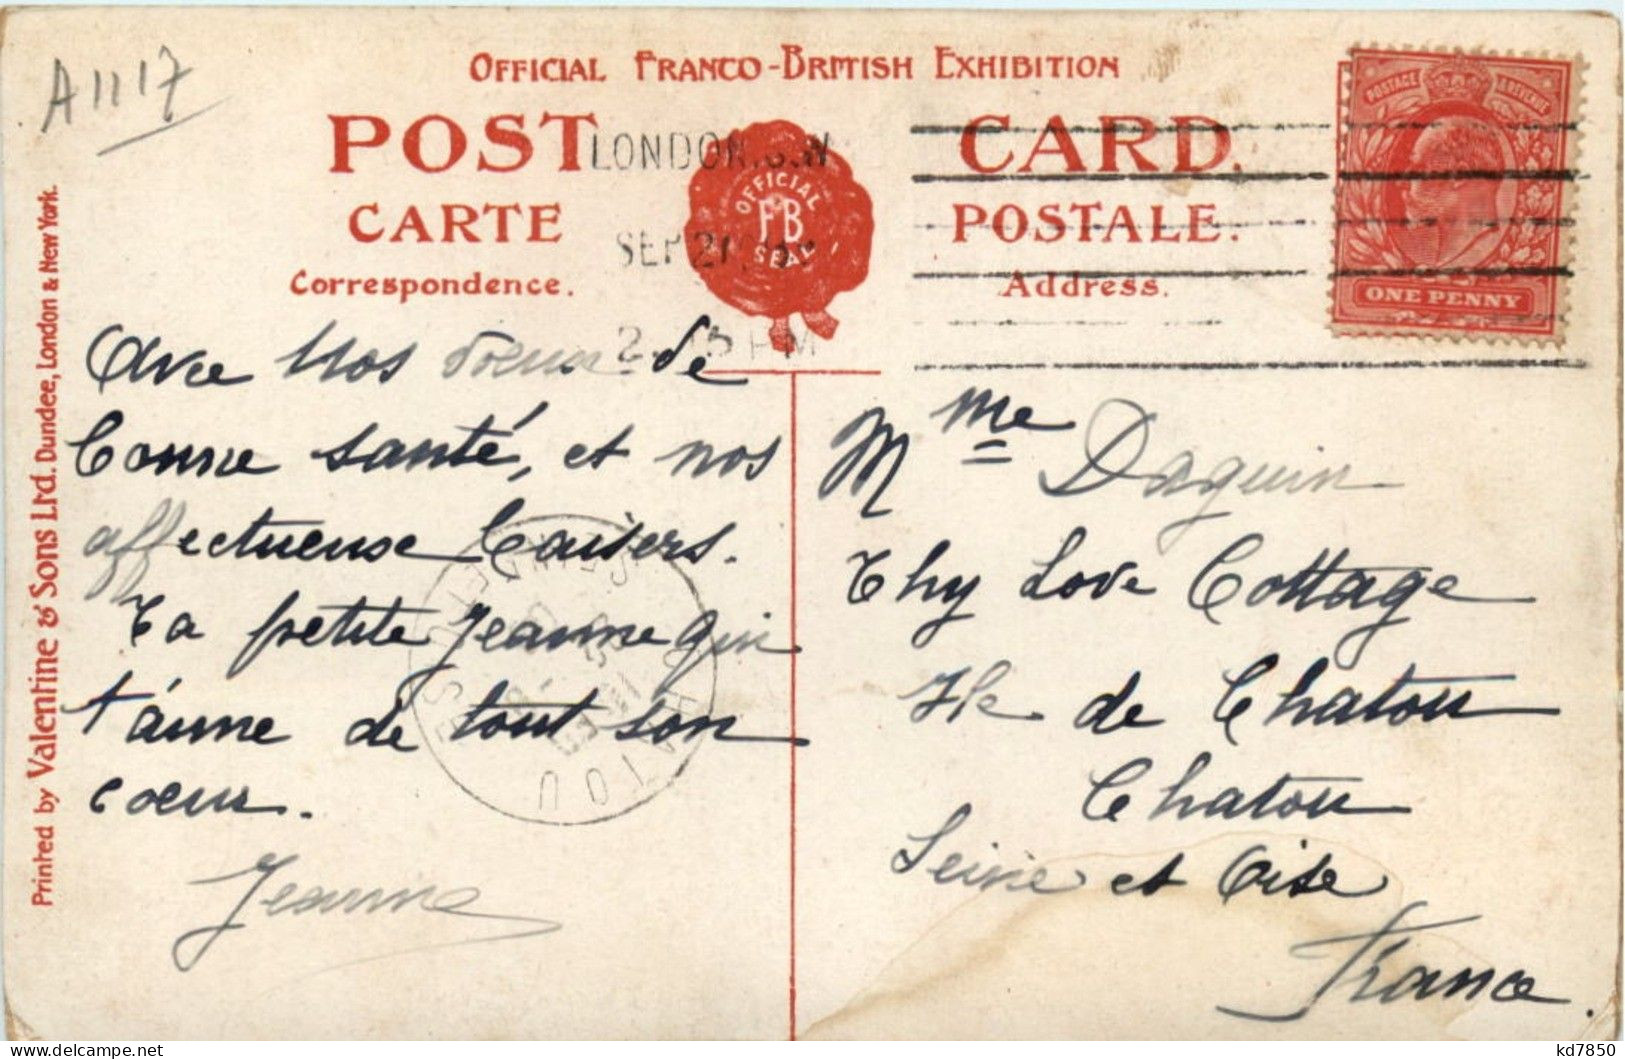 A1117
OFFICIAL FRANCO-BRITISH EXHIBITION
POST CARD.
CARTE POSTALE.
Correspondence.
Address.
OFFICIAL
FB
SEAL
LONDON.S.W
SEP 21
PM
POSTAGE & REVENUE
ONE PENNY
Avec nos voeux de
bonne santé, et nos
affectueuse baisers.
Ta petite Jeanne qui
t'aime de tout son
coeur.
Jeanne
Mme Daguin
Thy Love Cottage
Ile de Chatou
Chatou
Seine et Oise
France.
CHATOU
Printed by Valentine & Sons Ltd. Dundee, London & New York.
kd7850